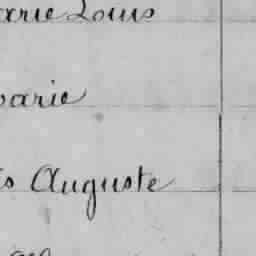 arie Louis
parie
is Auguste